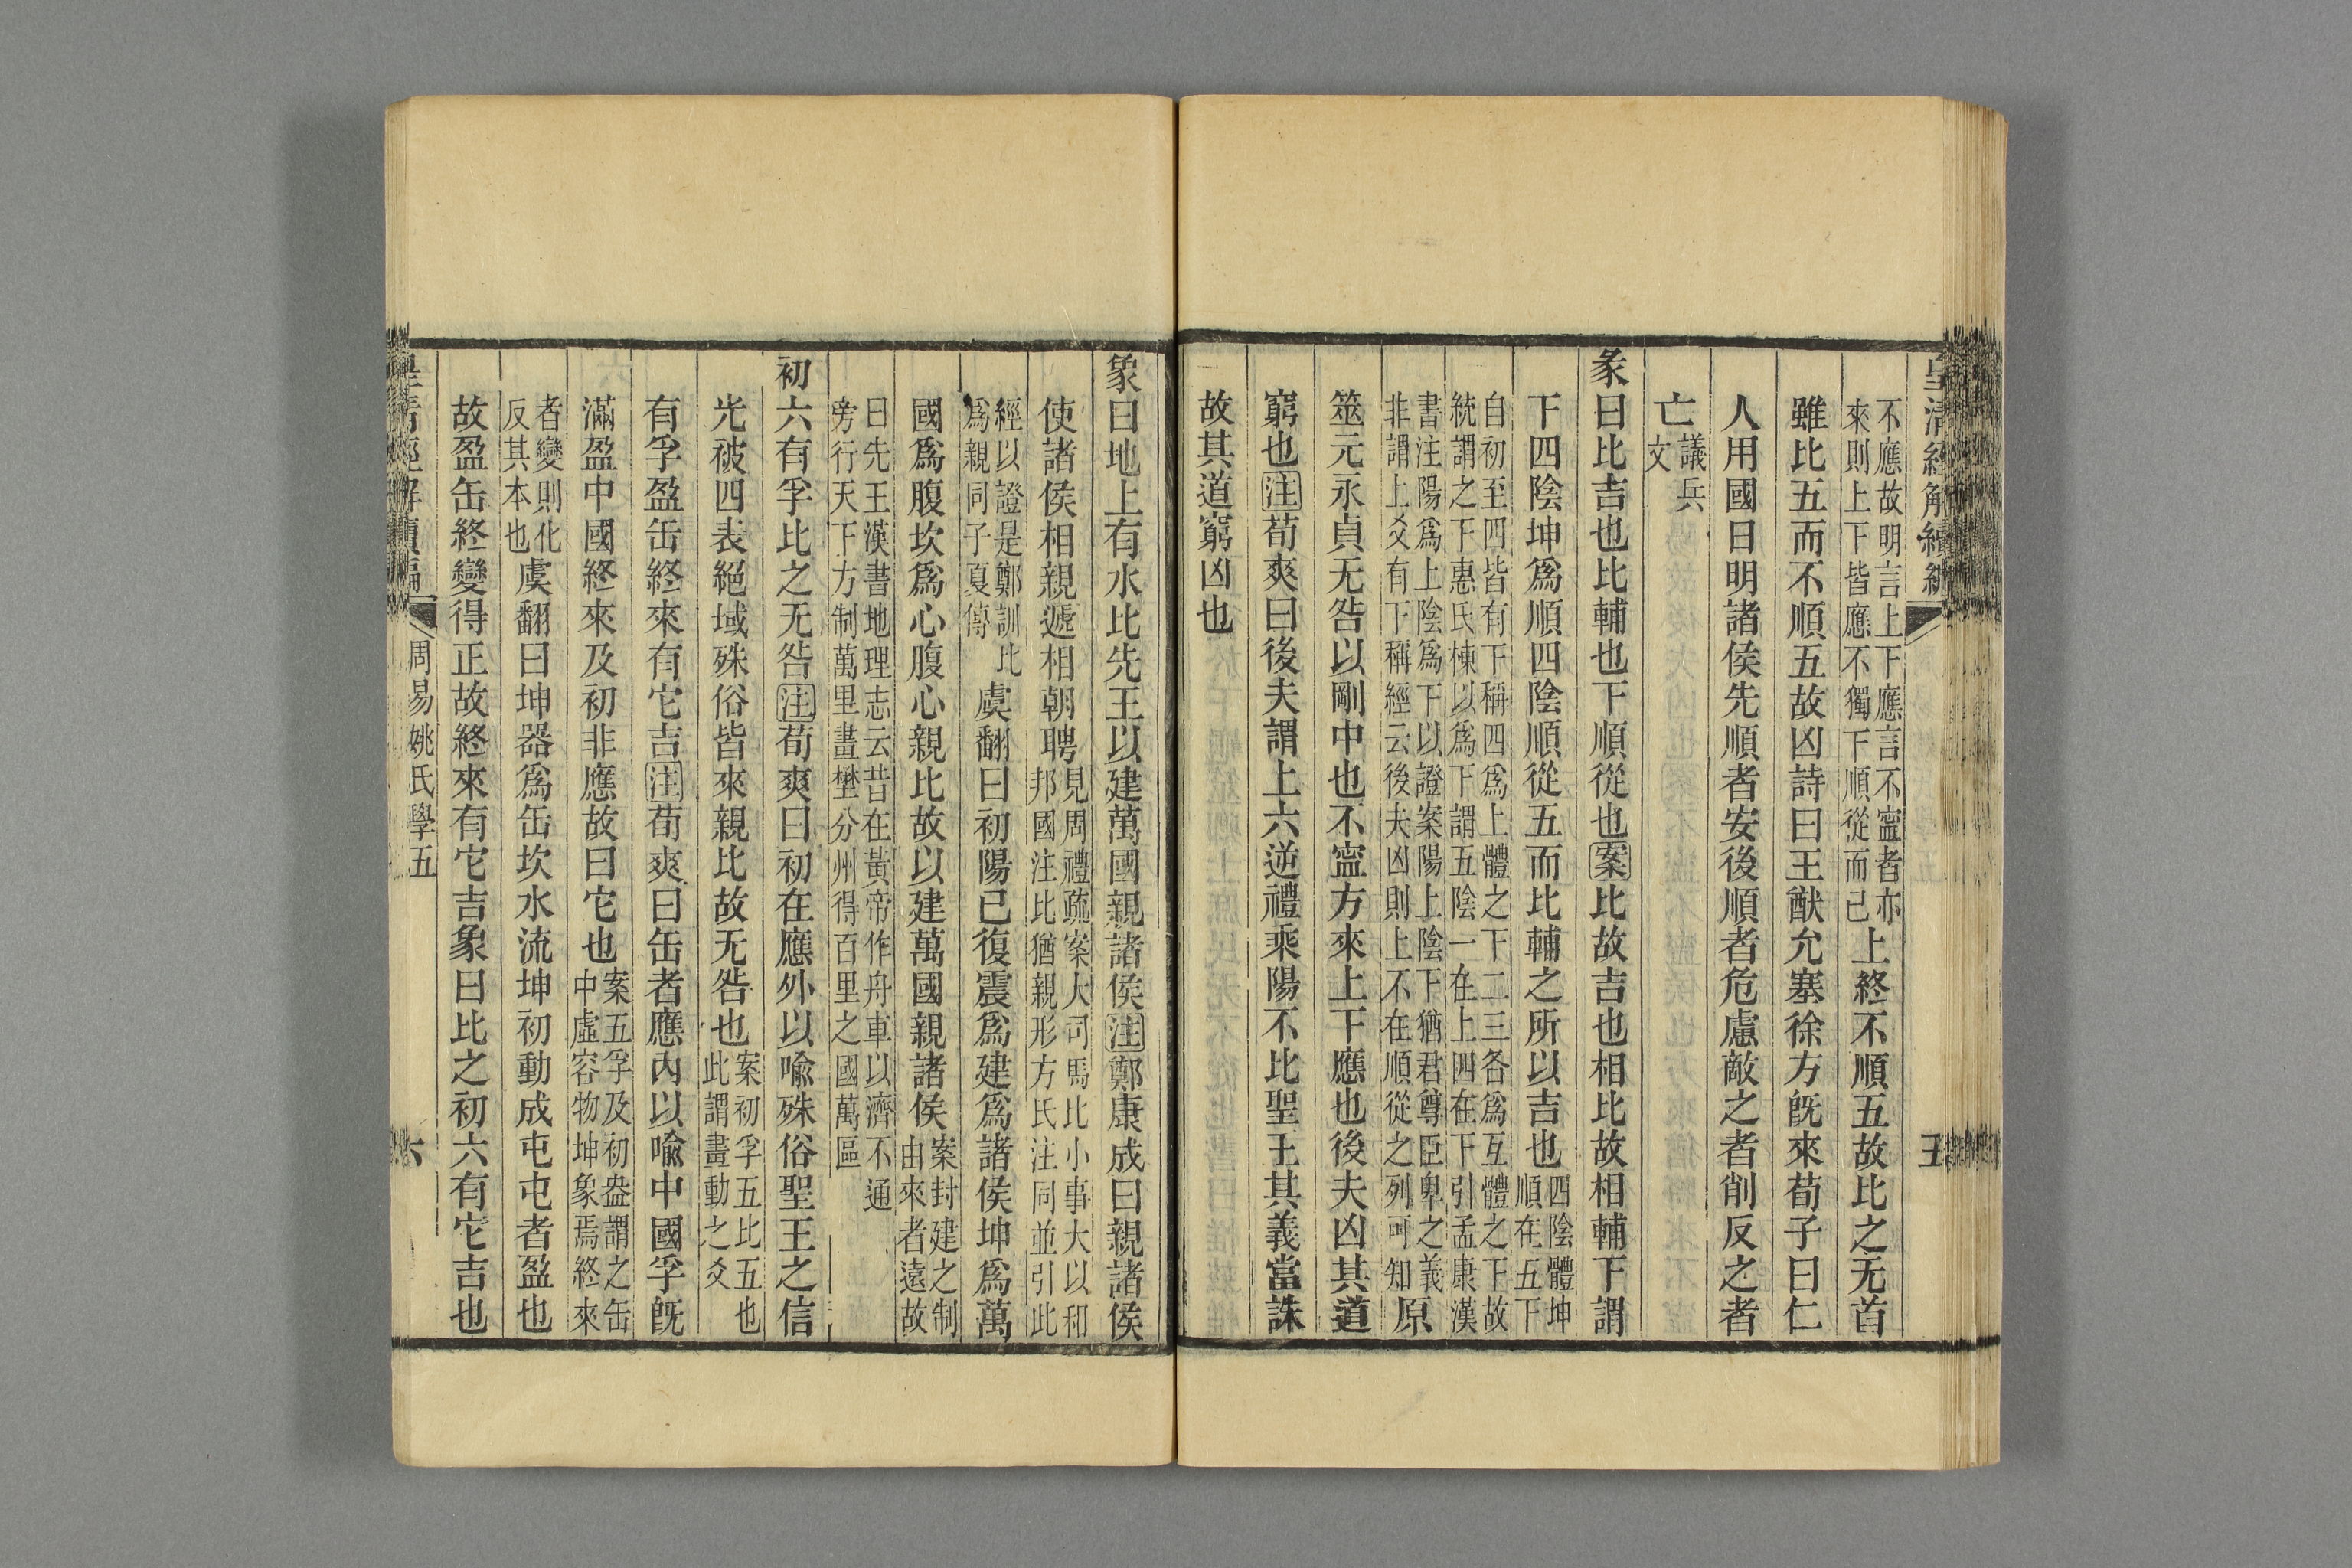 皇清經解續編
五
不應故明言上下應言不寧者亦
來則上下皆應不獨下順從而已
上終不順五故比之无首
雖比五而不順五故凶詩曰王猷允塞徐方旣來荀子曰仁
人用國日明諸侯先順者安後順者危慮敵之者削反之者
亡
議兵
文
彖曰比吉也比輔也下順從也案比故吉也相比故相輔下謂
下四陰坤爲順四陰順從五而比輔之所以吉也
四陰體坤
順在五下
自初至四皆有下稱四爲上體之下二三各爲互體之下故
統謂之下惠氏棟以爲下謂五陰一在上四在下引孟康漢
書注陽爲上陰爲下以證案陽上陰下猶君尊臣卑之義
非謂上爻有下稱經云後夫凶則上不在順從之列可知
原
筮元永貞无咎以剛中也不寧方來上下應也後夫凶其道
窮也注荀爽曰後夫謂上六逆禮乘陽不比聖王其義當誅
故其道窮凶也
象曰地上有水比先王以建萬國親諸侯注鄭康成曰親諸侯
使諸侯相親遞相朝聘
見周禮疏案大司馬比小事大以和
邦國注比猶親形方氏注同並引此
經以證是鄭訓比
爲親同子夏傳
虞翻曰初陽已復震爲建爲諸侯坤爲萬
國爲腹坎爲心腹心親比故以建萬國親諸侯
案封建之制
由來者遠故
曰先王漢書地理志云昔在黃帝作舟車以濟不通
旁行天下方制萬里畫壄分州得百里之國萬區
初六有孚比之无咎注荀爽曰初在應外以喩殊俗聖王之信
光被四表絕域殊俗皆來親比故无咎也
案初孚五比五也
此謂畫動之爻
有孚盈缶終來有它吉注荀爽曰缶者應內以喩中國孚旣
滿盈中國終來及初非應故曰它也
案五孚及初盎謂之缶
中虛容物坤象焉終來
者變則化
反其本也
虞翻曰坤器爲缶坎水流坤初動成屯屯者盈也
故盈缶終變得正故終來有它吉象曰比之初六有它吉也
皇清經解續編
周易姚氏學五
六